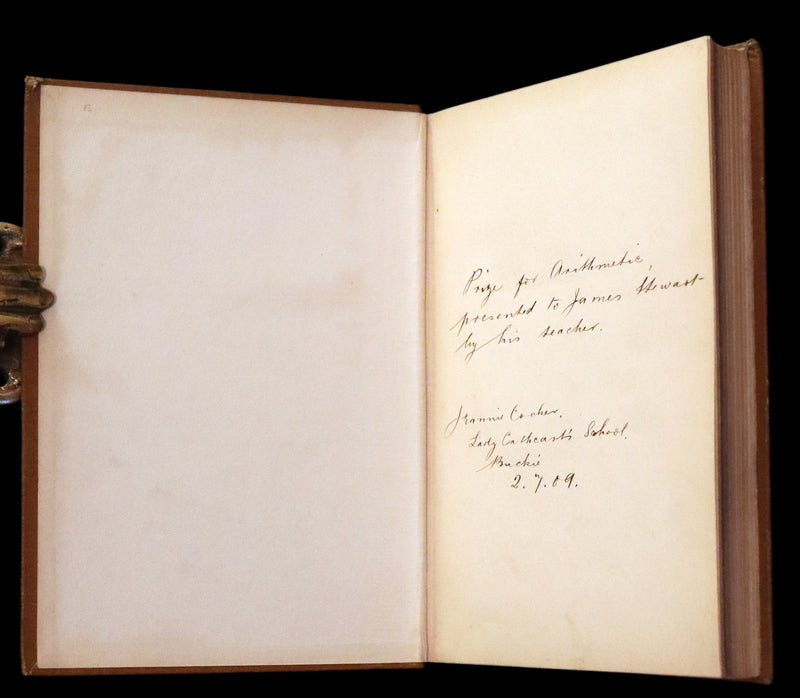 Prize for Arithmetic,
presented to James Stewart
by his teacher.
Jeannie
Lady Cathcart's School.
Buckie
2.7.09.